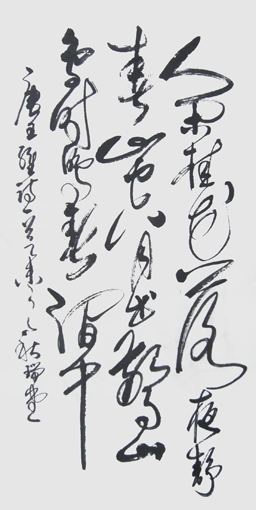 人闲桂花落夜静
春山空月出惊山
鸟时鸣春涧中
唐王维诗一首